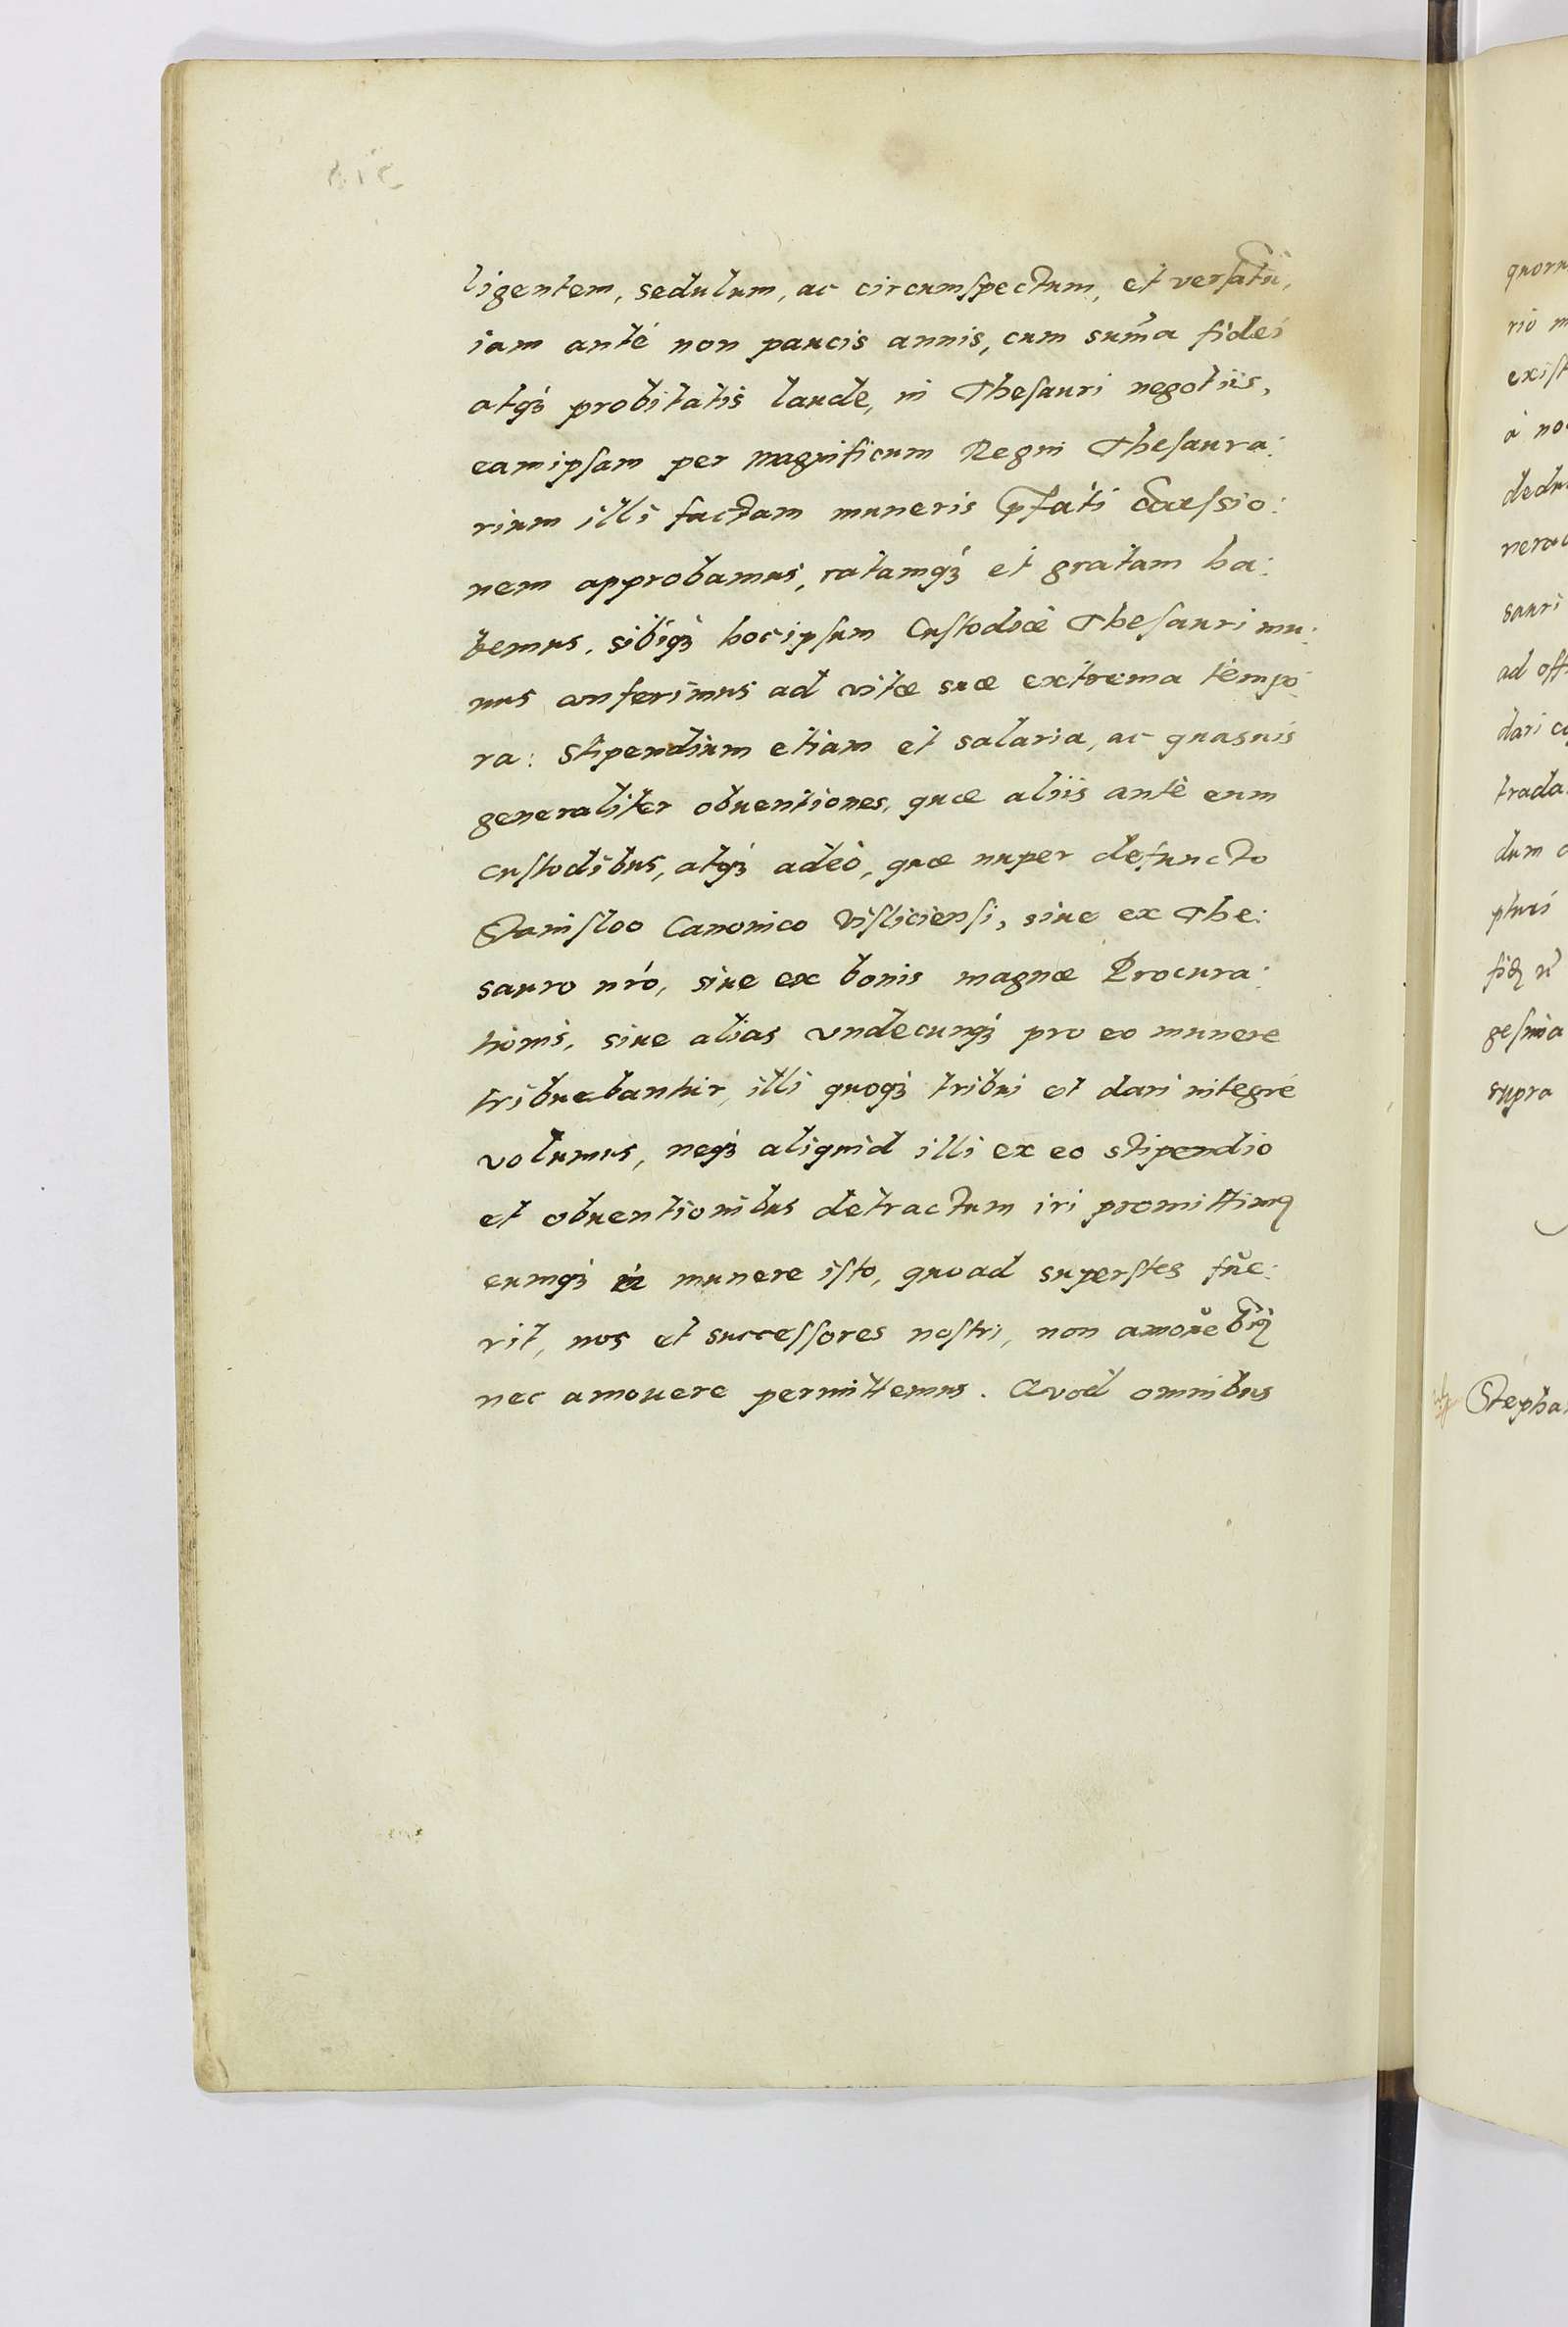 ligentem, sedulum, ac circumspectum, et versatū,
iam antè non paucis annis, cum suma̅ fidei
atq; probitatis laude, in Thesauri negotiis,
eamipsam per Magnificum Regni Thesaura:
rium illi factam muneris p̅fati
nem approbamus, ratamq; et gratam ha:
bemus, sibiq; hocipsum Custodiæ Thesauri mu:
nus conferimus ad vitæ suæ extrema tempo:
ra: Stipendium etiam et salaria, ac quasuis
generaliter obuentiones, quæ aliis antè eum
custodibus, atq; adeò, quæ nuper defuncto
Stanisloo Canonico Visliciensi, siue ex The:
sauro nr̅o, siue ex bonis magnæ Procura:
tionis, siue alias vndecunq; pro eo munere
tribuebantur, illi quoq; tribui et dari integrè
volumus, neq; aliquid illi ex eo stipendio
et obuentionibus detractum iri promittimus
eumq; in munere isto, quoad superstes fue:
rit, nos et successores nostri, non amouebimus
nec amouere permittemus. Quod omnibus
rio
exist
à no
dedu
sauri
ad off
dari
trada
dum
supra
Stepha